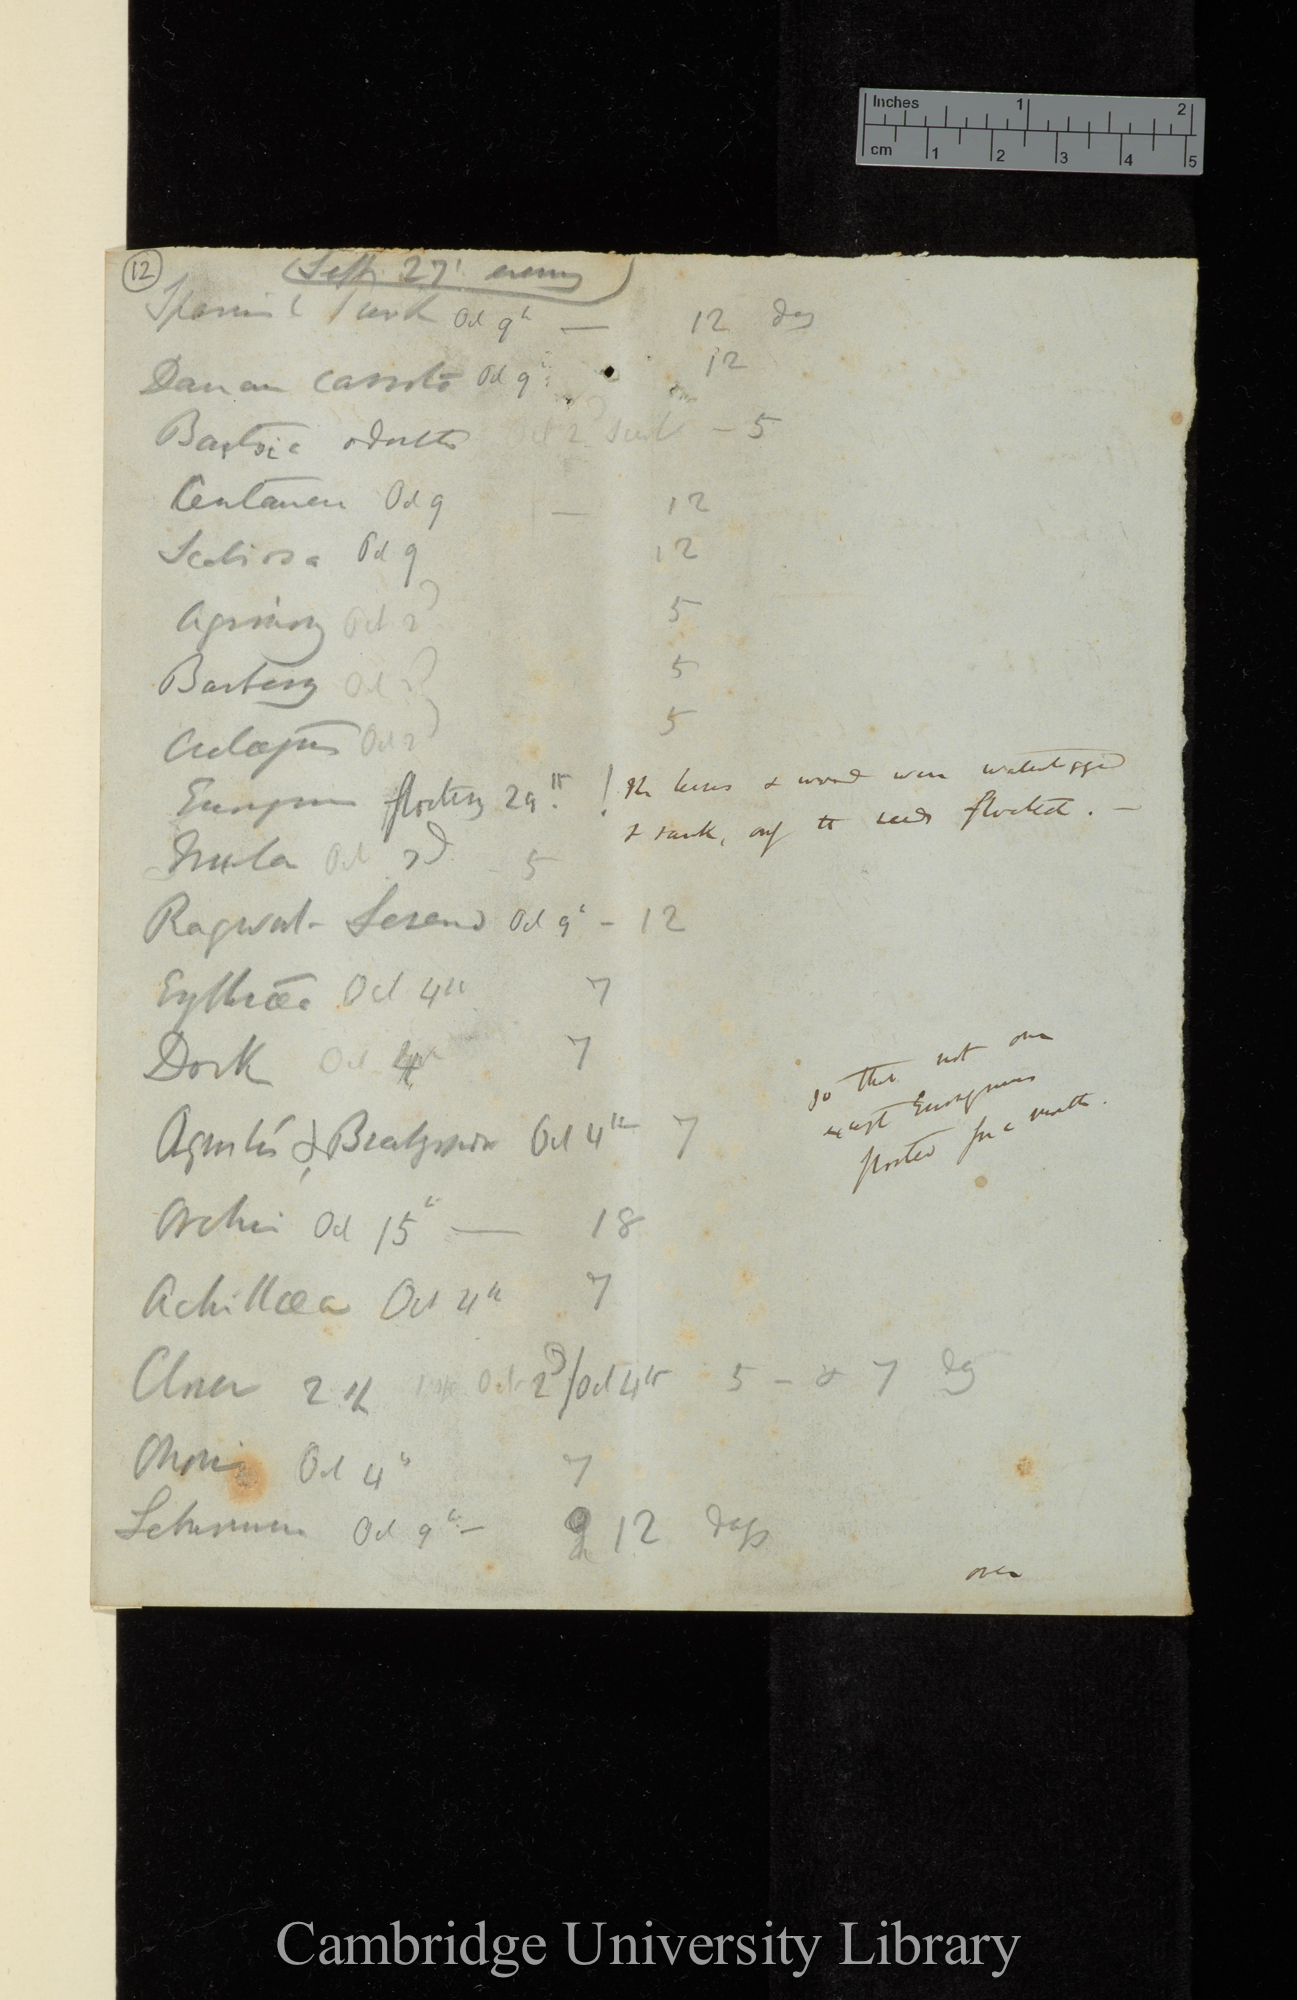 Inches 1 2
cm 1 2 3 4 5
12
(Sept. 27th evening)
Spanish Oct 9th — 12 day
Daucus carrota Oct 9th 12
Bartsia odontites Oct 2d sunk — 5
Centaurea Oct 9 — 12
Scabiosa Oct 9 12
Agrimony Oct 2d 5
Barberry Oct 2d 5
Crataegus Oct 2d 5
Euonymus floating 29th! The leaves & wood were waterlogged
& sank, only the seeds floated. —
Inula Oct 2d 5
Ragwort - Senecio Oct 9th — 12
Erythraea Oct 4th 7
Dock Oct 4th 7
so that not one
except Euonymus
floated for a month.
Agrostis & Brachypodium Oct 4th 7
Orchis Oct 15th — 18
Achillaea Oct 4th 7
Clover 2 Oct 2d/Oct 4th 5 — & 7 dy
Ononis Oct 4th 7
Oct 9th — 12 days
over
Cambridge University Library